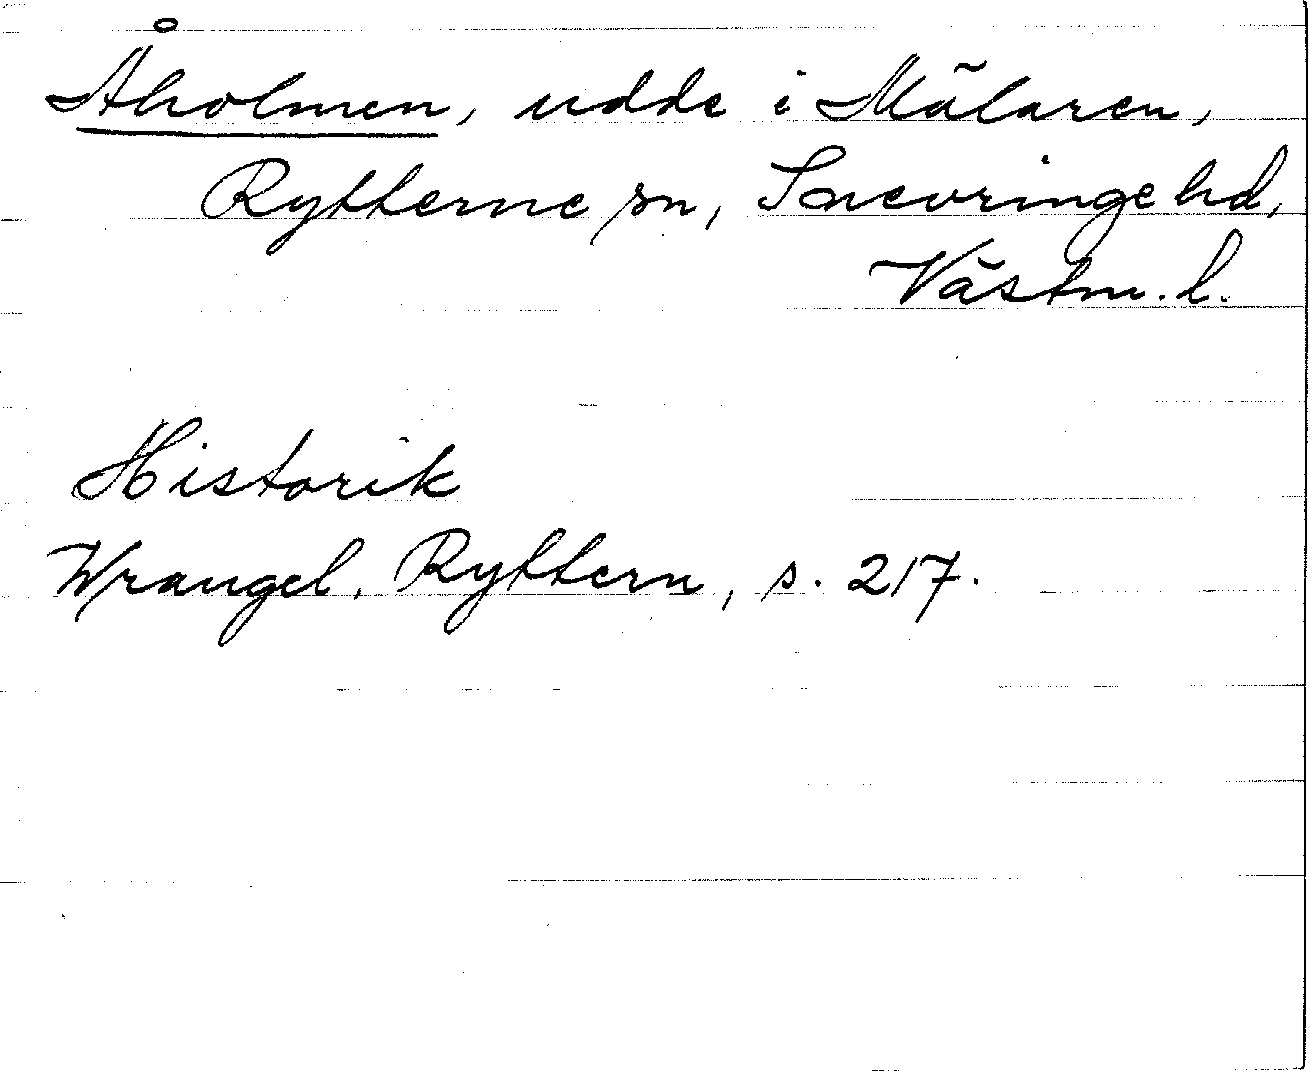 Åholmen, udde i Mälaren,
Rytterne sn, Snevringe hd,
Västm. l.
Historik
Wrangel, Ryttern, s. 217.